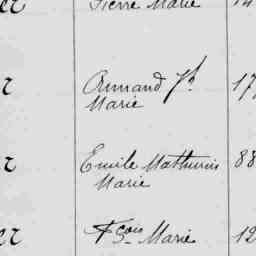 er Pierre Marie 14
r Armand Jh 17
Marie
r Emile Mathurin 88
Marie
er Fçois Marie 12